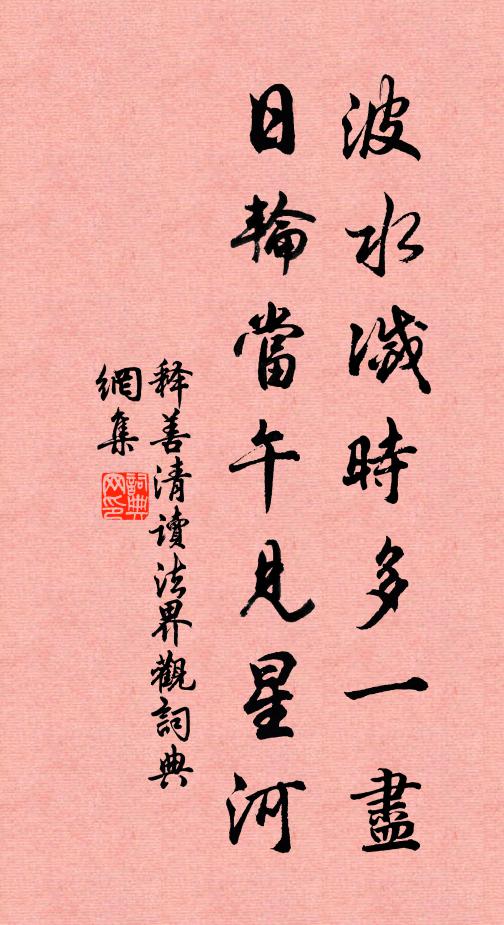 波水滅時多一盡
日輪當午見星河
释善清讀法界觀詞典
網集
詞典
网印